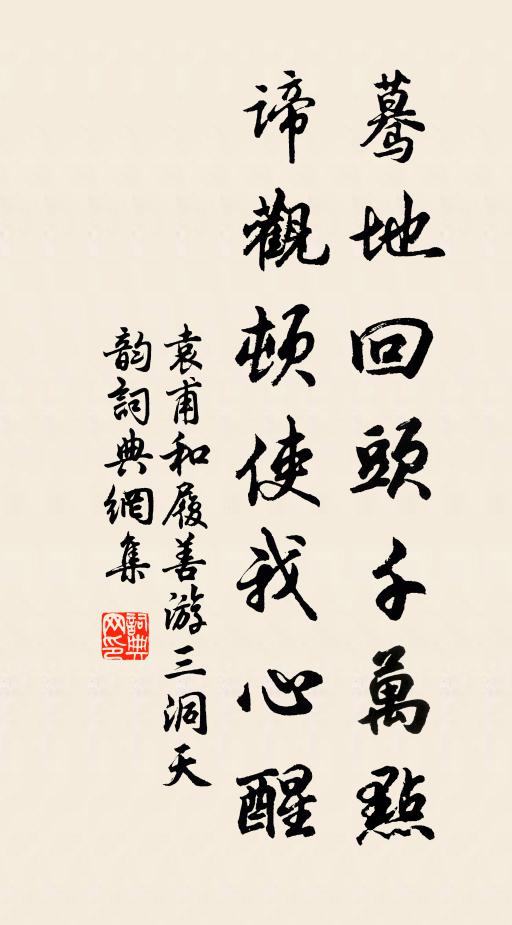 驀地回頭千萬點
諦觀頓使我心醒
袁甫和履善游三洞天
韵詞典網集
詞典网印